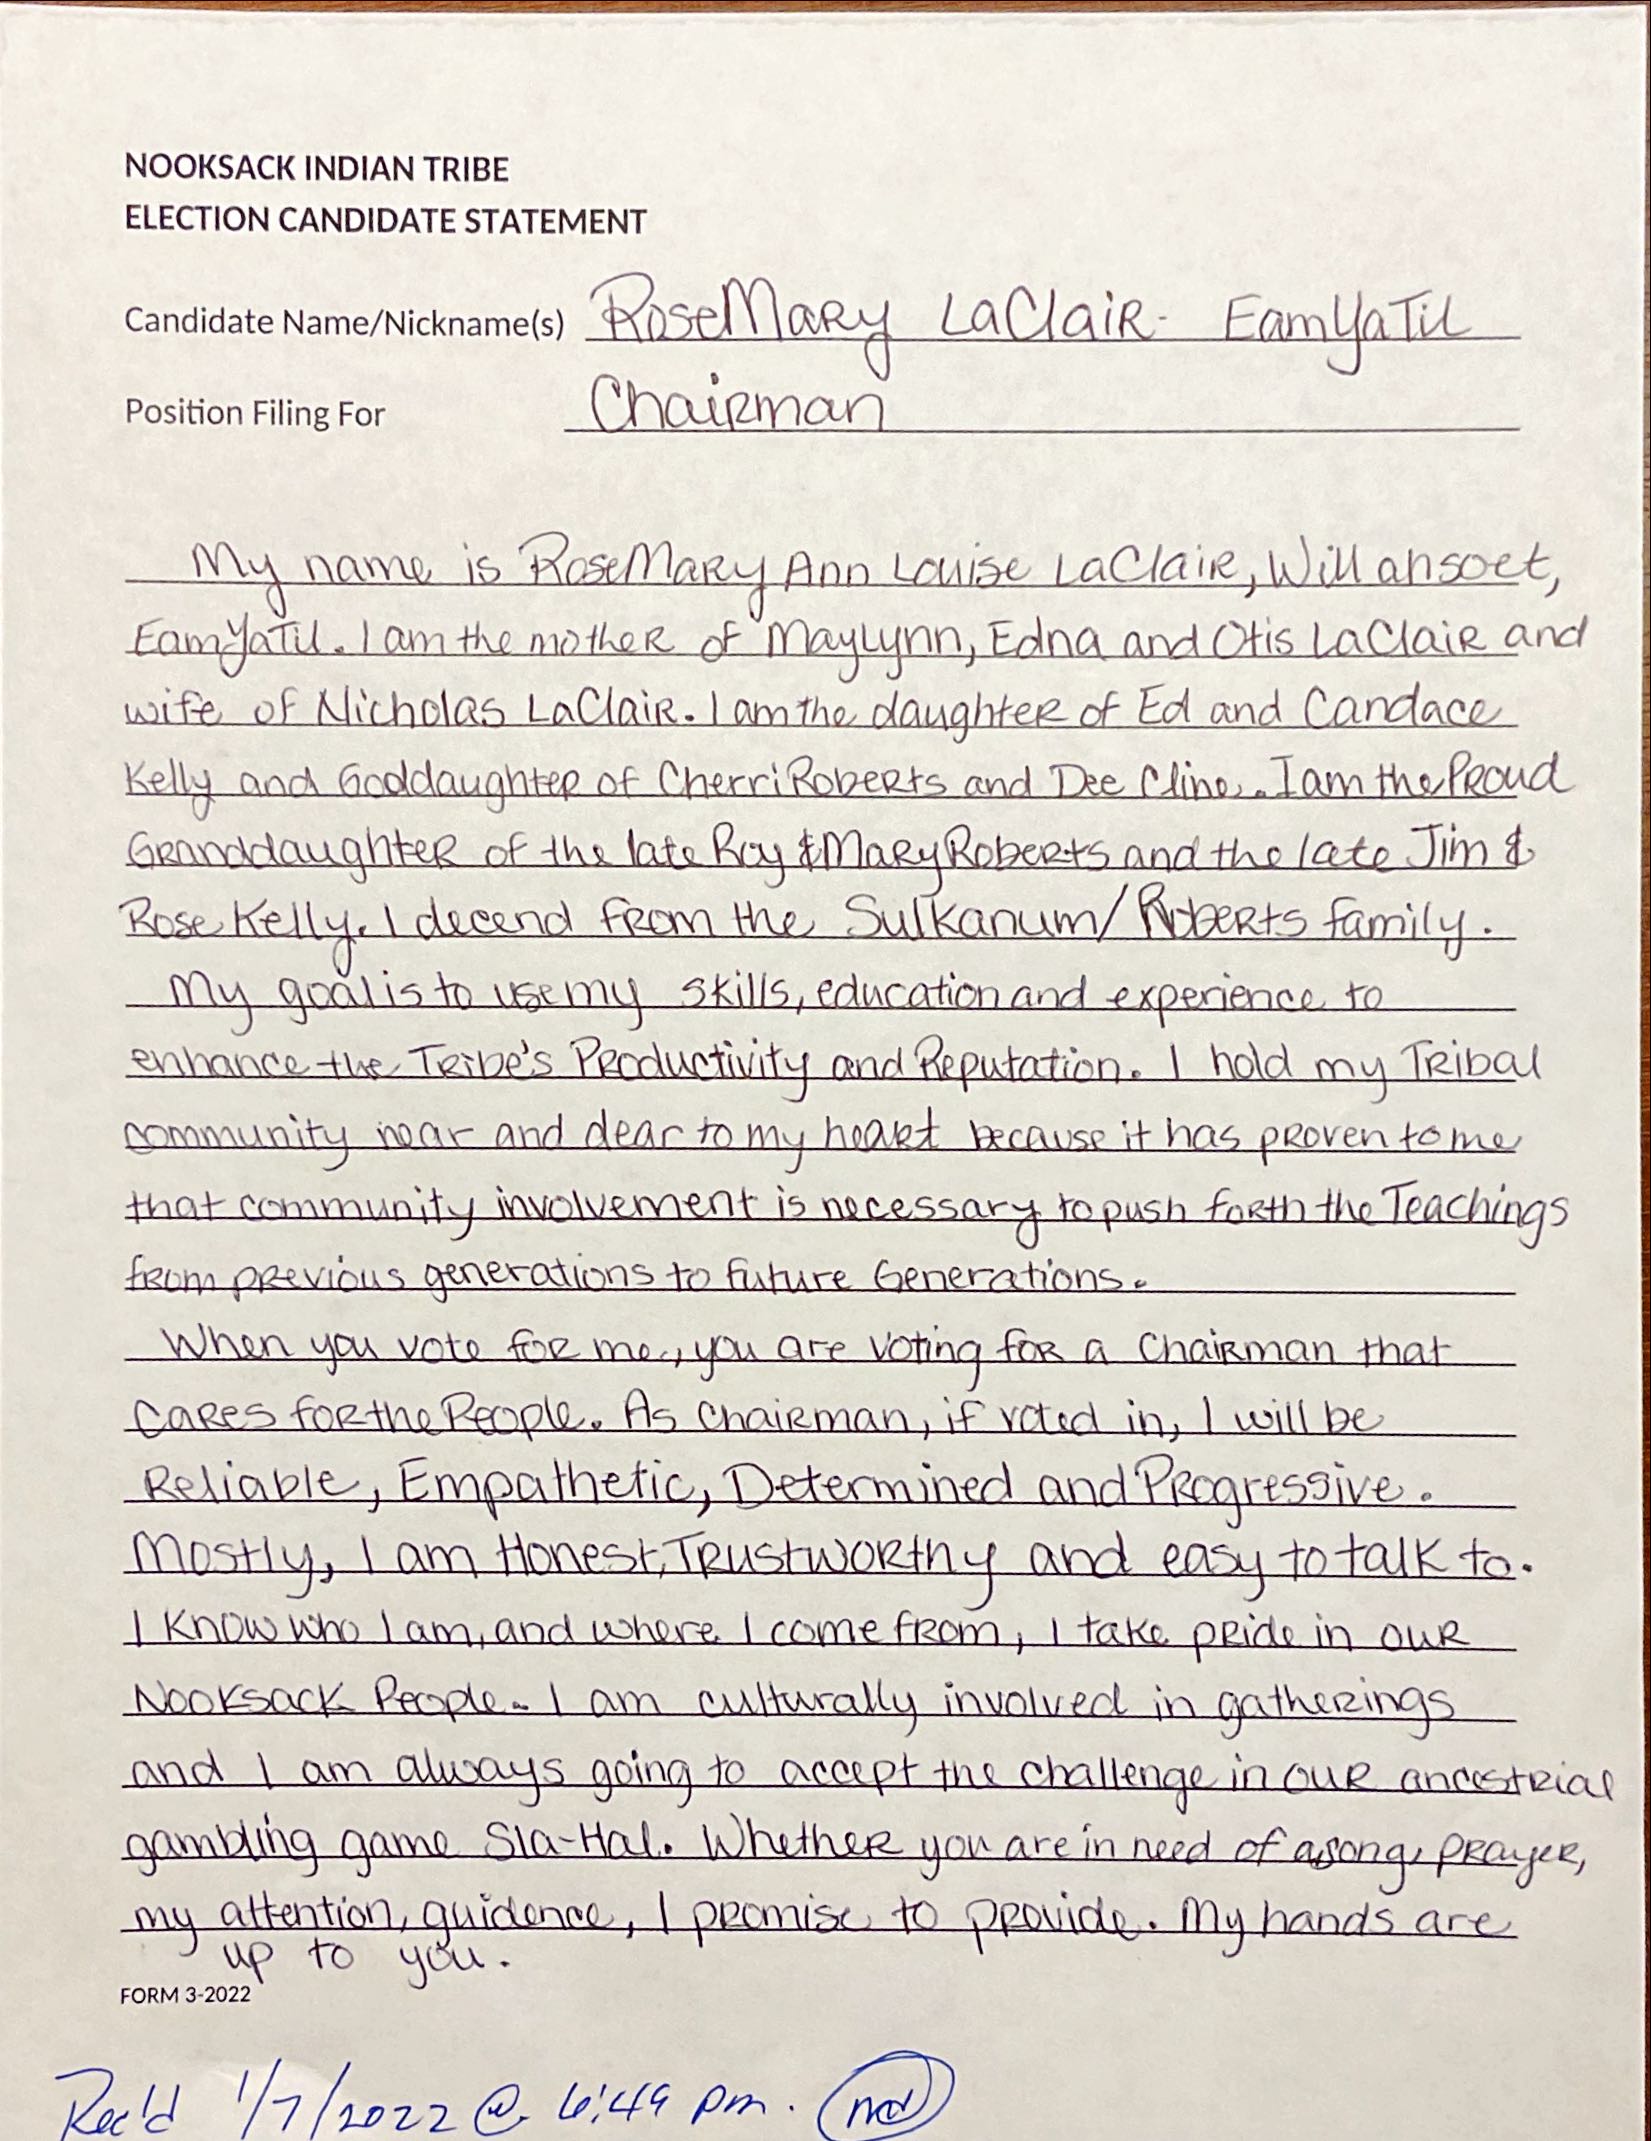 NOOKSACK INDIAN TRIBE
ELECTION CANDIDATE STATEMENT
Candidate Name/Nickname(s) RoseMary LaClair - EamYaTil
Position Filing For Chairman
My name is RoseMary Ann Louise LaClair, Will ahsoet,
EamYaTil. I am the mother of Maylynn, Edna and Otis LaClair and
wife of Nicholas LaClair. I am the daughter of Ed and Candace
Kelly and Goddaughter of Cherri Roberts and Dee Cline. I am the Proud
Granddaughter of the late Roy & Mary Roberts and the late Jim &
Rose Kelly. I decend from the Sulkanum/Roberts family.
My goal is to use my skills, education and experience to
enhance the Tribe's Productivity and Reputation. I hold my Tribal
community near and dear to my heart because it has proven to me
that community involvement is necessary to push forth the Teachings
from previous generations to future Generations.
When you vote for me, you are voting for a Chairman that
cares for the People. As Chairman, if voted in, I will be
Reliable, Empathetic, Determined and Progressive.
Mostly, I am Honest, Trustworthy and easy to talk to.
I know who I am, and where I come from, I take pride in our
Nooksack People. I am culturally involved in gatherings
and I am always going to accept the challenge in our ancestrial
gambling game Sla-Hal. Whether you are in need of a song, prayer,
my attention, guidence, I promise to provide. My hands are
up to you.
FORM 3-2022
Rec'd 1/7/2022 @ 6:49 pm.